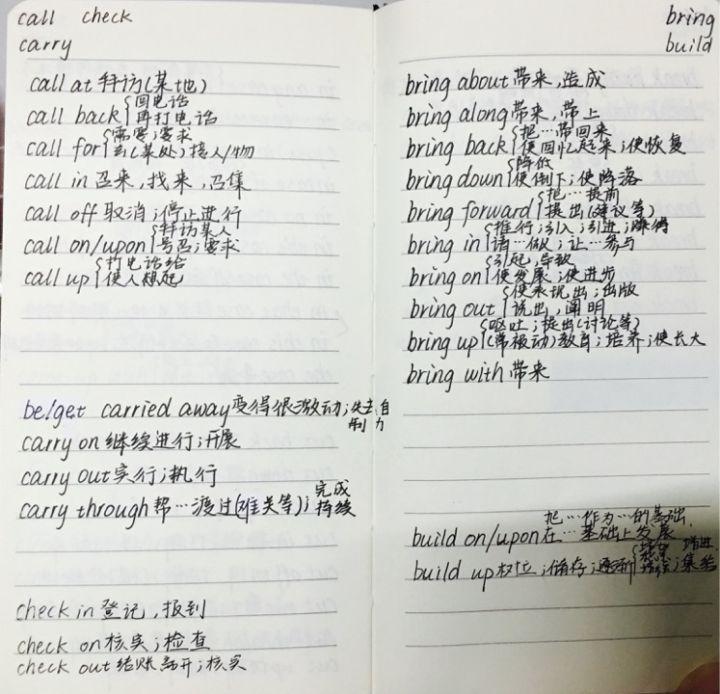 call check
carry
call at 拜访(某地)
call back {回电话
再打电话
call for {需要;要求
去(某处)接人/物
call in 召来,找来,召集
call off 取消;停止进行
call on/upon {拜访某人
号召;要求
call up {打电话给
使人想起
be/get carried away 变得很激动;失去自制力
carry on 继续进行;开展
carry out 实行;执行
carry through 帮…渡过(难关等);完成
持续
check in 登记,报到
check on 核实;检查
check out 结账离开;核实
bring
build
bring about 带来,造成
bring along 带来,带上
bring back {把…带回来
使回忆起来;使恢复
bring down {降低
使倒下;使降落
bring forward {把…提前
提出(建议等)
bring in {推行;引入;引进;赚得
请…做;让…参与
bring on {引起,导致
使发展;使进步
bring out {使表现出;出版
说出,阐明
bring up {呕吐;提出(讨论等)
(常被动)教育;培养;使长大
bring with 带来
build on/upon 把…作为…的基础,
在…基础上发展
build up 树立;储存;逐渐 增进
;集结